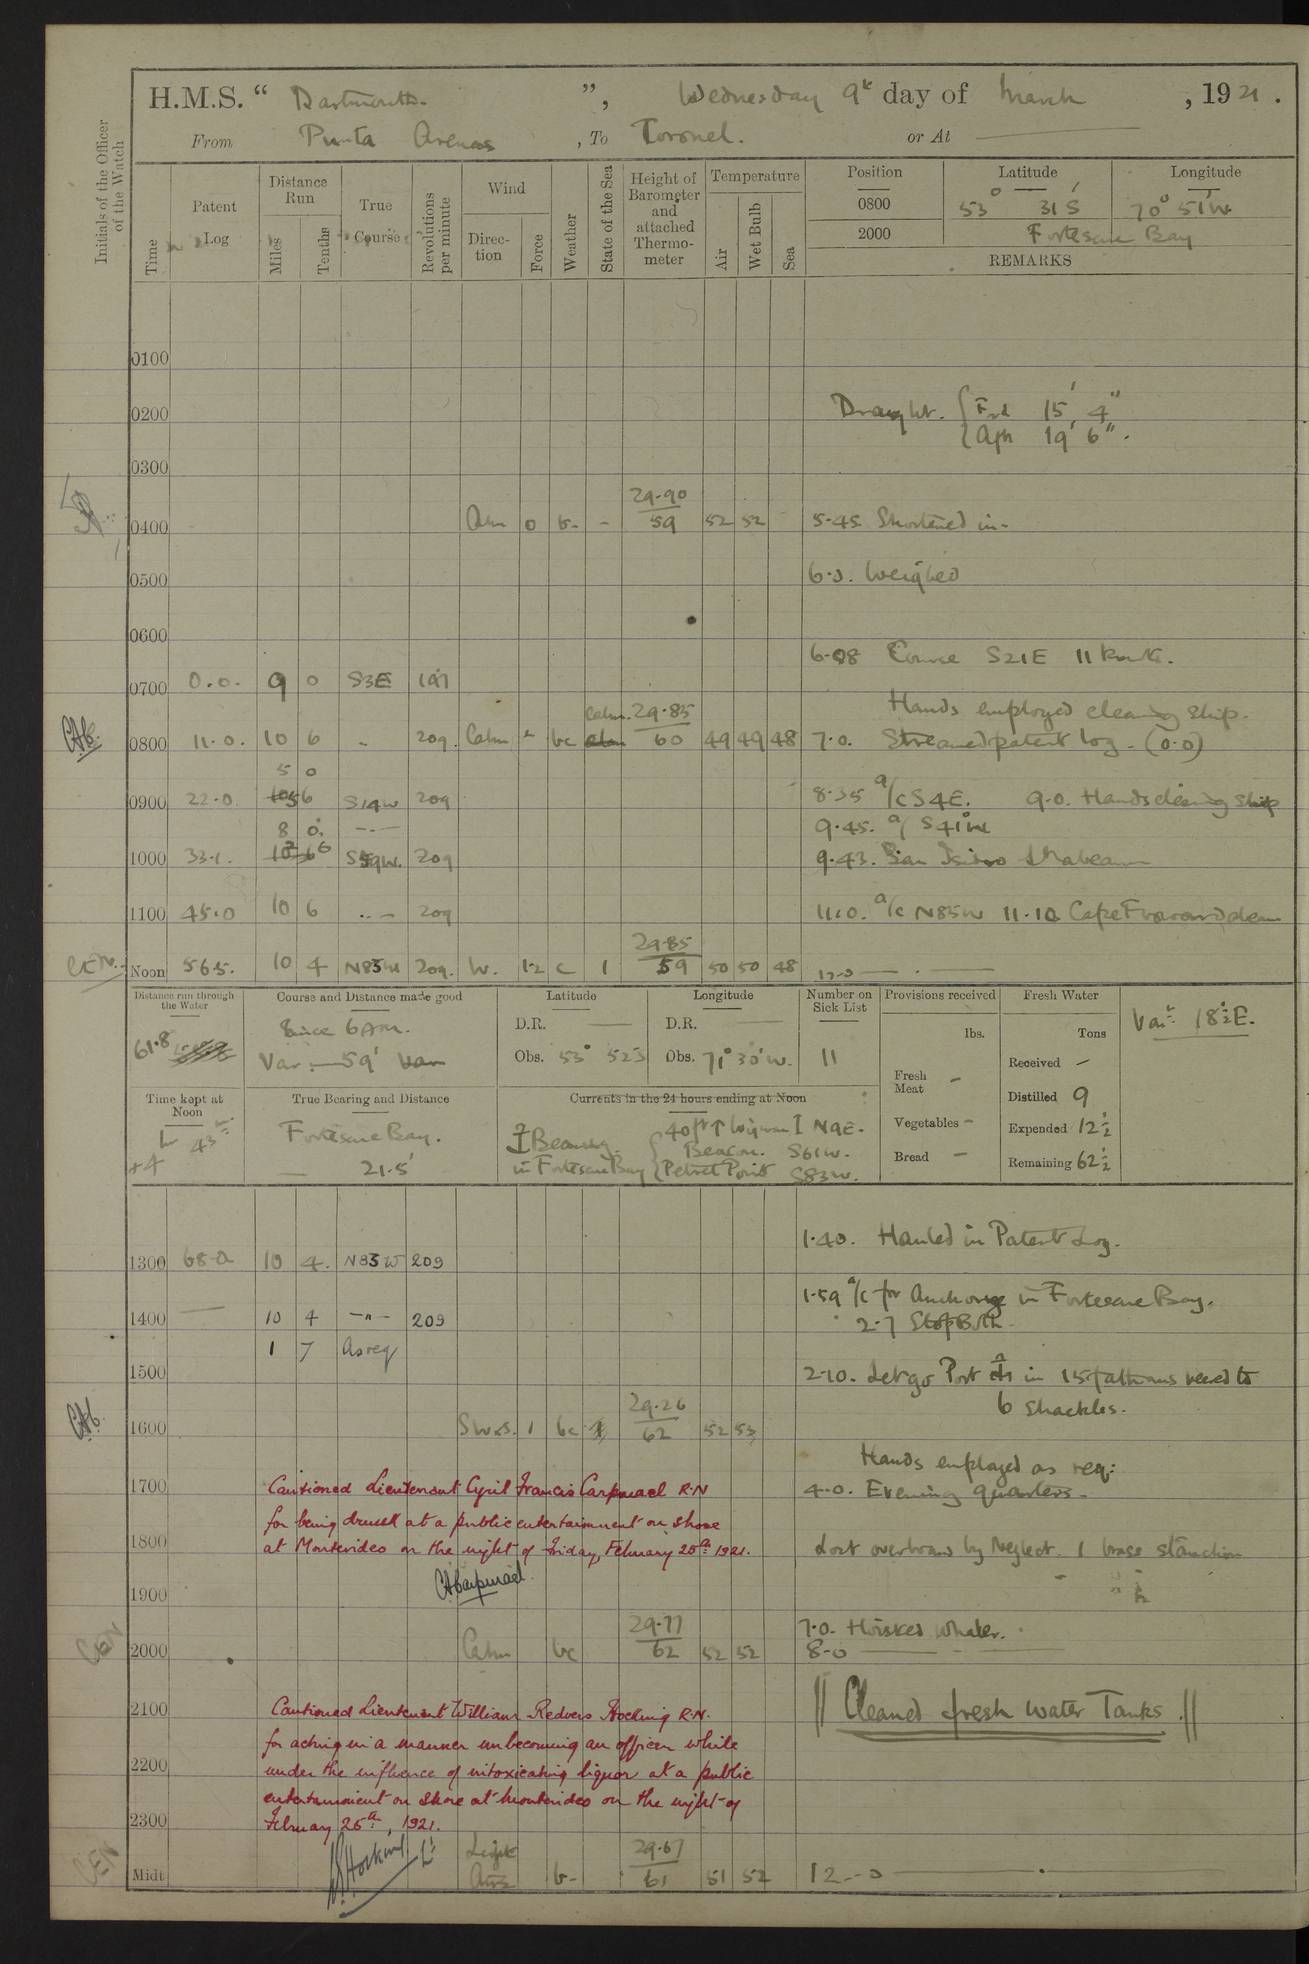 H.M.S. " Dartmouth. ", Wednesday 9th day of March, 1921.
From Punta Arenas, To Coronel. or At
Initials of the Officer of the Watch
Time
Patent Log
Distance Run
Miles
Tenths
True Course
Revolutions per minute
Wind
Direction
Force
Weather
State of the Sea
Height of Barometer and attached Thermometer
Temperature
Air
Wet Bulb
Sea
Position Latitude Longitude
0800 53° 31'S 70° 51'W.
2000 Fortescue Bay
REMARKS
0100
0200 Draught. Ford 15' 4"
Aft 19' 6".
0300
0400 Calm 0 b. - 29.90 59 52 52 5.45 Shortened in-
0500 6.0. Weighed
0600
6.08 Course S21E 11 knots.
0700 0.0. 9 0 S3E 197
Hands employed cleaning ship.
0800 11.0. 10 6 209. Calm bc Calm. 29.85 60 49 49 48 7.0. Streamed patent log. (0.0)
5 0
0900 22.0 S14W 209 8.35 a/c S4E. 9.0. Hands cleaning ship
8 0 9.45. a/c S41W
1000 33.1. S59W. 209 9.43. San Isidro abeam
1100 45.0 10 6 209 11.0. a/c N85W 11.10 Cape Froward abeam
Noon 56.5. 10 4 N85W 209. W. 1-2 c 1 29.85 59 50 50 48
Distance run through the Water
61.8
Course and Distance made good
Since 6AM.
Latitude
D.R.
Obs. 53° 52'S
Longitude
D.R.
Obs. 71° 30'W.
Number on Sick List
11
Provisions received
lbs.
Fresh Meat -
Vegetables -
Bread -
Fresh Water
Tons
Received -
Distilled 9
Expended 12½
Remaining 62½
Varn. 18½E.
Time kept at Noon
+4 h 43 m
True Bearing and Distance
Fortescue Bay.
21.5'
Currents in the 24 hours ending at Noon
Bearing in Fortescue Bay
N9E.
Beacon. S61W.
Petrel Point S83W.
1.40. Hauled in Patent Log.
1300 68.0 10 4. N83W 209
1.59 a/c for Anchorage in Fortescue Bay.
1400 10 4 -"- 209 2.7 Stop Both
1 7 As req
1500 2.10. Let go Port in 15 fathoms veered to
6 shackles.
1600 SW.S. 1 bc 29.26 62 52 53
Hands employed as req:
1700 4.0. Evening quarters.
Cautioned Lieutenant Cyril Francis Carpmael R.N
for being drunk at a public entertainment on shore
at Montevideo on the night of Friday, February 25th 1921.
1800 Lost overboard by Neglect. 1 brass stanchion
CFCarpmael
1900
7.0. Hoisted whaler.
2000 Calm bc 29.77 62 52 52 8.0
2100 Cleaned fresh water Tanks.
Cautioned Lieutenant William Redvers Hocking R.N.
for acting in a manner unbecoming an officer while
2200 under the influence of intoxicating liquor at a public
entertainment on shore at Montevideo on the night of
2300 February 25th, 1921.
Hocking Lt
Midt Light Airs b. 29.67 61 51 52 12.0